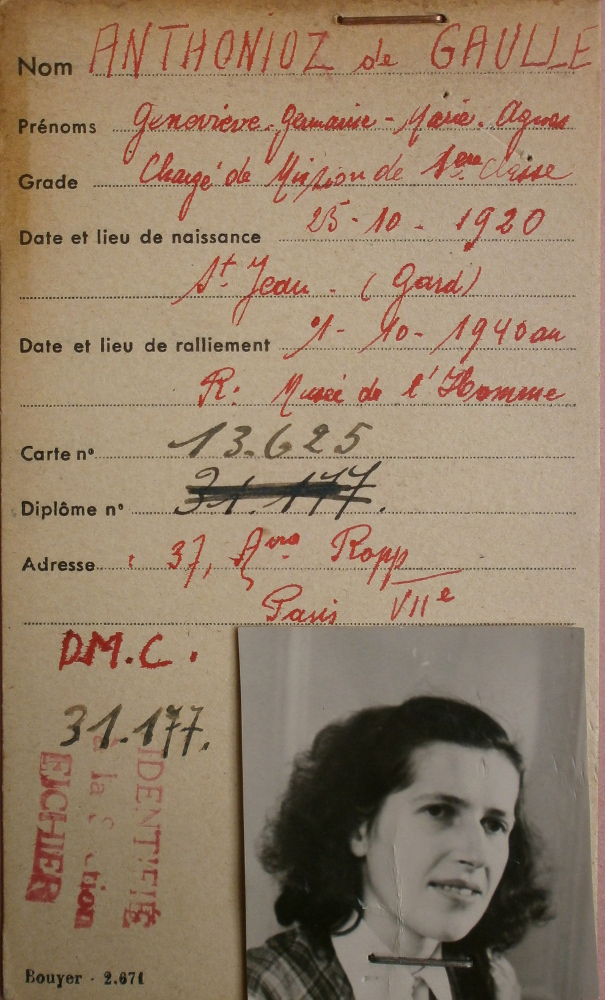 Nom ANTHONIOZ de GAULLE
Prénoms Geneviève-Germaine-Marie-Agnès
Grade Chargé de Mission de 1ère classe
Date et lieu de naissance 25-10-1920
St Jean - (Gard)
Date et lieu de ralliement 1-10-1940 au
R. Musée de l'Homme
Carte n° 13.625
Diplôme n° 31.177.
Adresse 37, Rapp
Paris VIIe
D.M.C.
31.177.
IDENTIFIÉ
à la tion
FICHIER
Bouyer - 2.671